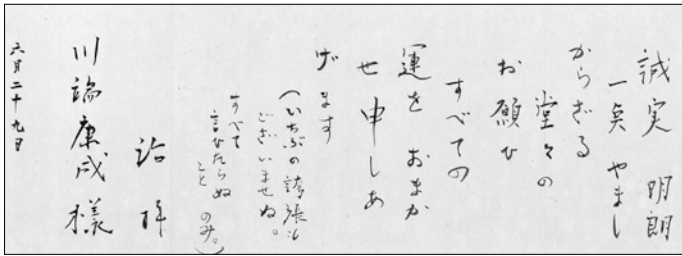 誠実 明朗
一点 やまし
からざる
堂々の
お願ひ
すべての
運を おまか
せ申しあ
げます
（いちぶの誇張も
ございませぬ。
すべて
言ひたらぬ
こと のみ。）
治 拝
川端康成様
六月二十九日